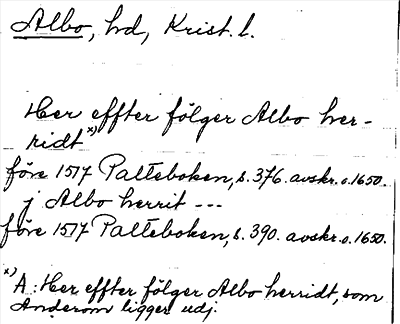 Albo, hd, Krist. l.
Her effter fölger Albo her-
ridt x)
före 1517 Palteboken, s. 376. avskr. o. 1650.
j Albo herrit ---
före 1517 Palteboken, s. 390. avskr. o. 1650.
x) A: Her effter fölger Albo herridt, som
Anderom ligger udj.